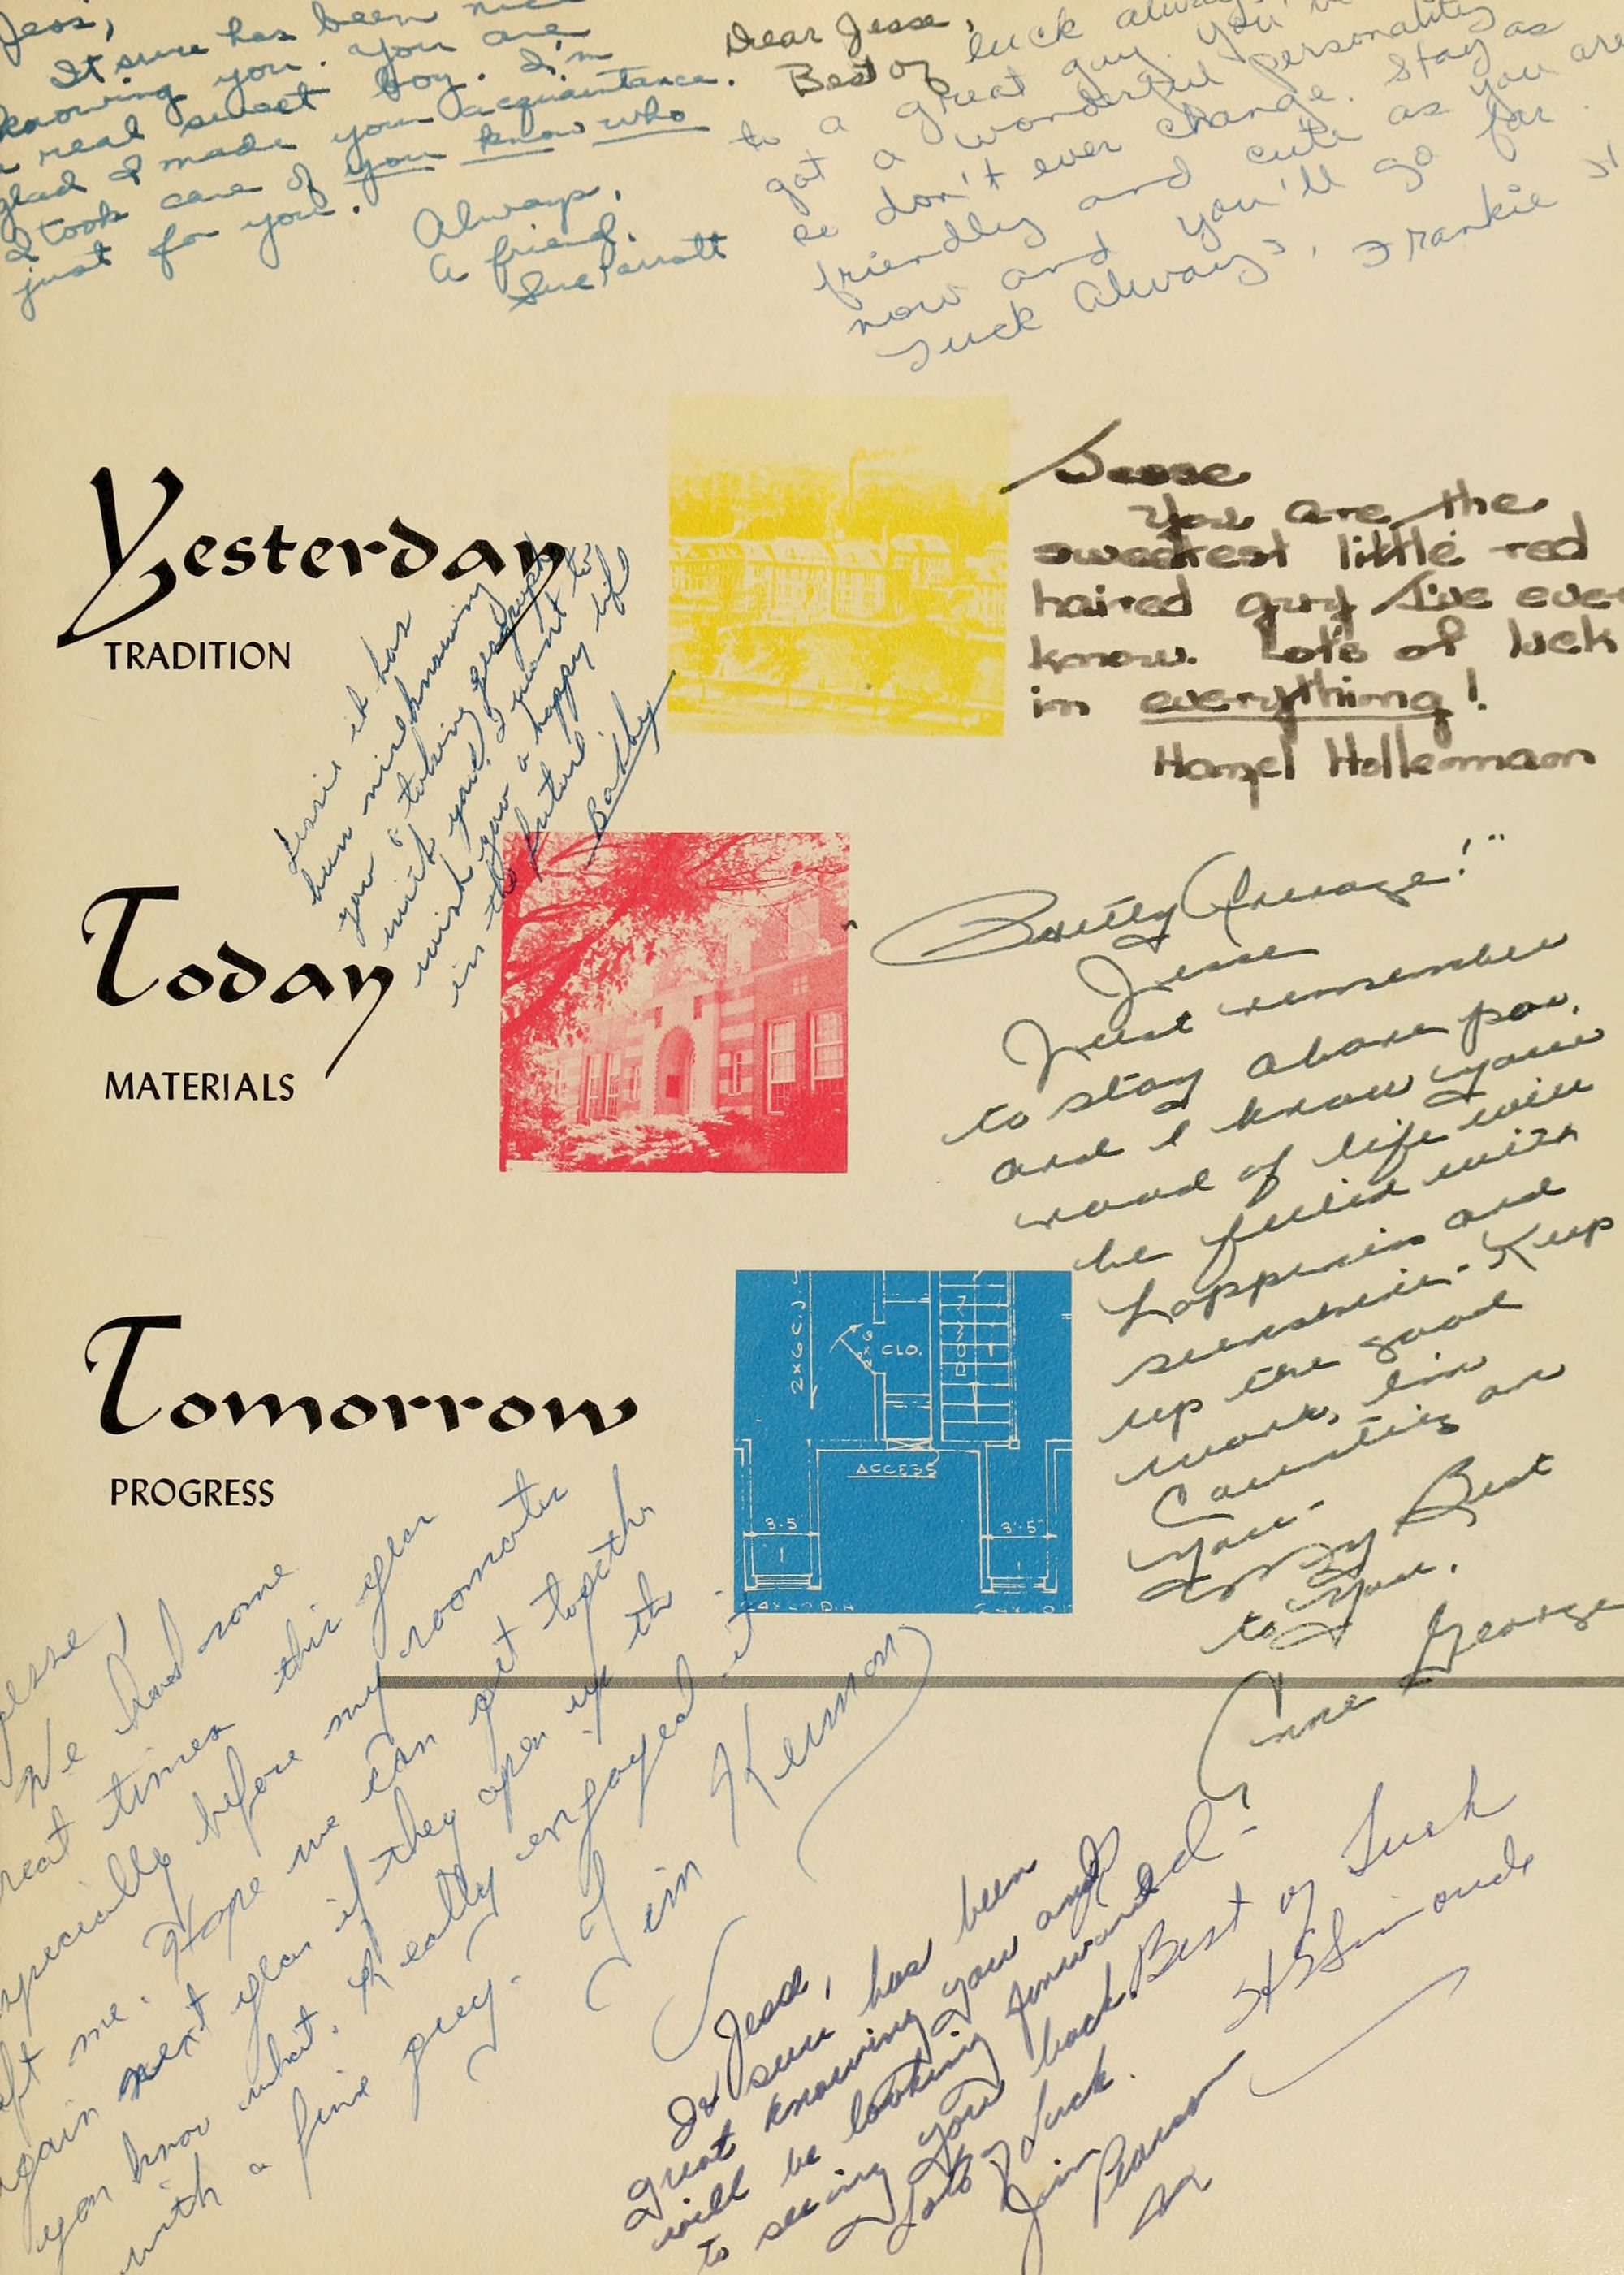 Jess,
It sure has been nice
knowing you. You are
a real sweet boy. I'm
glad I made your acquaintance.
I took care of you know who
just for you.
Always,
a friend,
Sue
Dear Jesse,
Best of luck always
to a great guy. You've
got a wonderful personality
so don't ever change. Stay as
friendly and cute as you are
now and you'll go far.
Luck Always, Frankie
Yesterday
TRADITION
Jesse
You are the
sweetest little red
haired guy I've ever
know. Lot's of luck
in everything!
Hazel Holleman
Jessie it has
been nice knowing
you & taking geography
with you. I want to
wish you a happy life
in the future.
Bobby
Today
MATERIALS
Jesse
Just remember
to stay above par,
and I know your
road of life will
be filled with
happiness and
sunshine. Keep
up the good
work, I'm
Counting on
you.
My Best
to You.
Anne George
Tomorrow
PROGRESS
2X6 C.J.
CLO.
DOWN
ACCESS
3-5
3'-5"
Jesse
We had some
great times this year
especially before my roomate
left me. Hope we can get together
again next year if they open up the
you know what. Really enjoyed it
with a fine guy.
Jim Kennon
Jesse,
It sure has been
great knowing you and
will be looking forward
to seeing you back. Best of Luck
Lots of Luck.
Jim Pearson
Simonds